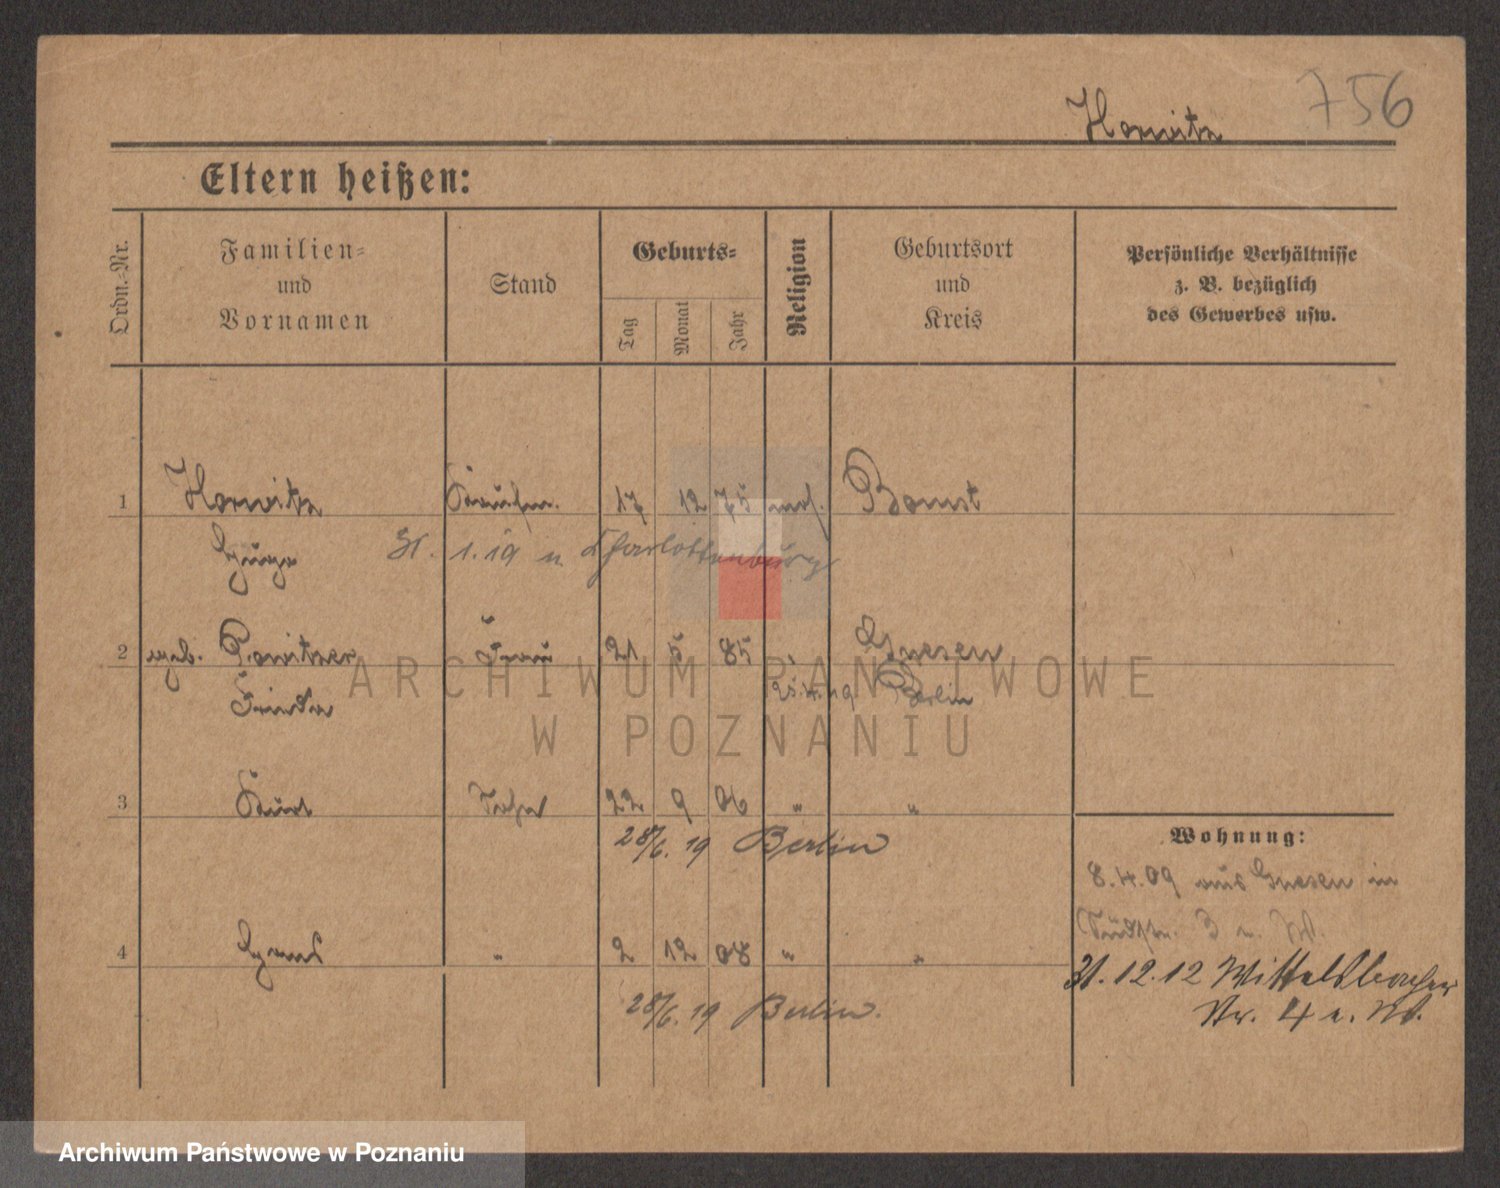 756
Horwitz
Eltern heißen:
Ordn.-Nr.
Familien-
und
Vornamen
Stand
Geburts-
Tag
Monat
Jahr
Religion
Geburtsort
und
Kreis
Persönliche Verhältnisse
z. B. bezüglich
des Gewerbes usw.
1 Horwitz Kaufm. 17 12 75 mos. Bomst
Hugo 31. 1. 19 n. Charlottenburg
2 geb. Frau 21 5 85 " Gnesen
Frieda 25. 4. 19 Berlin
3 Kurt Sohn 22 9 06 " "
28/6. 19 Berlin
Wohnung:
8. 4. 09 aus Gnesen in
3 u. W.
4 Hans " 2 12 08 " "
31. 12. 12 Wittelsbacher
Str. 4 u. W.
28/6. 19 Berlin.
ARCHIWUM PAŃSTWOWE
W POZNANIU
Archiwum Państwowe w Poznaniu